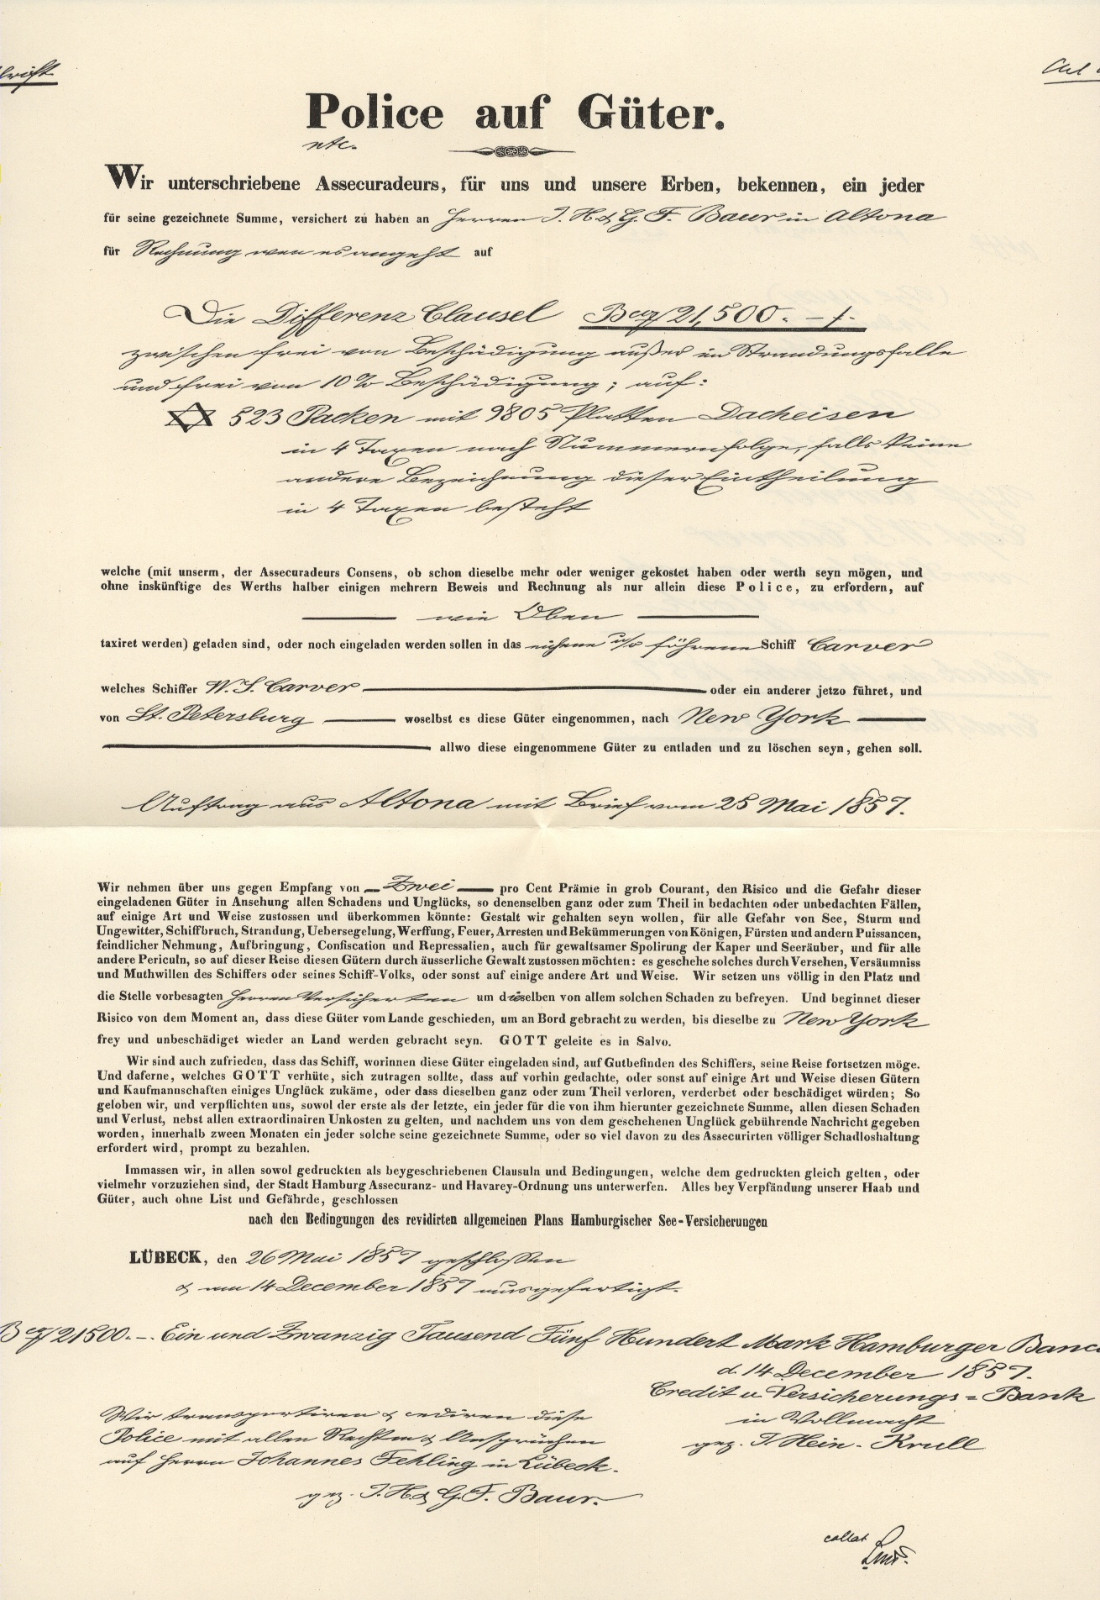 Police auf Güter.
etc.
Wir unterschriebene Assecuradeurs, für uns und unsere Erben, bekennen, ein jeder
für seine gezeichnete Summe, versichert zu haben an Herren J. H. & G. F. Baur in Altona
für Rechnung wen es angeht auf
Die Differenz Clausel Bco/ 21,500. –
zwischen frei von Beschädigung außer im Strandungsfalle
und frei von 10% Beschädigung; auf:
523 Packen mit 9805 Platten Dacheisen
in 4 Taxen nach Nummernfolge, falls keine
andere Bezeichnung dieser Eintheilung
in 4 Taxen besteht
welche (mit unserm, der Assecuradeurs Consens, ob schon dieselbe mehr oder weniger gekostet haben oder werth seyn mögen, und
ohne inskünftige des Werths halber einigen mehrern Beweis und Rechnung als nur allein diese Police, zu erfordern, auf
wie Oben
taxiret werden) geladen sind, oder noch eingeladen werden sollen in das eichene u/o föhrene Schiff Carver
welches Schiffer W. S. Carver oder ein anderer jetzo führet, und
von St. Petersburg woselbst es diese Güter eingenommen, nach New York
allwo diese eingenommene Güter zu entladen und zu löschen seyn, gehen soll.
Auftrag aus Altona mit Brief vom 25 Mai 1857.
Wir nehmen über uns gegen Empfang von Zwei pro Cent Prämie in grob Courant, den Risico und die Gefahr dieser
eingeladenen Güter in Ansehung allen Schadens und Unglücks, so denenselben ganz oder zum Theil in bedachten oder unbedachten Fällen,
auf einige Art und Weise zustossen und überkommen könnte: Gestalt wir gehalten seyn wollen, für alle Gefahr von See, Sturm und
Ungewitter, Schiffbruch, Strandung, Uebersegelung, Werffung, Feuer, Arresten und Bekümmerungen von Königen, Fürsten und andern Puissancen,
feindlicher Nehmung, Aufbringung, Confiscation und Repressalien, auch für gewaltsamer Spolirung der Kaper und Seeräuber, und für alle
andere Periculn, so auf dieser Reise diesen Gütern durch äusserliche Gewalt zustossen möchten: es geschehe solches durch Versehen, Versäumniss
und Muthwillen des Schiffers oder seines Schiff-Volks, oder sonst auf einige andere Art und Weise. Wir setzen uns völlig in den Platz und
die Stelle vorbesagten Herren Versicherten um dieselben von allem solchen Schaden zu befreyen. Und beginnet dieser
Risico von dem Moment an, dass diese Güter vom Lande geschieden, um an Bord gebracht zu werden, bis dieselbe zu New York
frey und unbeschädigt wieder an Land werden gebracht seyn. GOTT geleite es in Salvo.
Wir sind auch zufrieden, dass das Schiff, worinnen diese Güter eingeladen sind, auf Gutbefinden des Schiffers, seine Reise fortsetzen möge.
Und daferne, welches GOTT verhüte, sich zutragen sollte, dass auf vorhin gedachte, oder sonst auf einige Art und Weise diesen Gütern
und Kaufmannschaften einiges Unglück zukäme, oder dass dieselben ganz oder zum Theil verloren, verderbet oder beschädiget würden; So
geloben wir, und verpflichten uns, sowol der erste als der letzte, ein jeder für die von ihm hierunter gezeichnete Summe, allen diesen Schaden
und Verlust, nebst allen extraordinairen Unkosten zu gelten, und nachdem uns von dem geschehenen Unglück gebührende Nachricht gegeben
worden, innerhalb zween Monaten ein jeder solche seine gezeichnete Summe, oder so viel davon zu des Assecurirten völliger Schadloshaltung
erfordert wird, prompt zu bezahlen.
Immassen wir, in allen sowol gedruckten als beygeschriebenen Clausuln und Bedingungen, welche dem gedruckten gleich gelten, oder
vielmehr vorzuziehen sind, der Stadt Hamburg Assecuranz- und Havarey-Ordnung uns unterwerfen. Alles bey Verpfändung unserer Haab und
Güter, auch ohne List und Gefährde, geschlossen
nach den Bedingungen des revidirten allgemeinen Plans Hamburgischer See-Versicherungen
LÜBECK, den 26 Mai 1857 geschlossen
& am 14 December 1857 ausgefertigt.
Bco/ 21500. –. Ein und Zwanzig Tausend Fünf Hundert Mark Hamburger Banco
d. 14 December 1857.
Credit u Versicherungs = Bank
in Vollmacht
gez. J. Hein. Krull
Wir transportiren & cediren diese
Police mit allen Rechten & Ansprüchen
auf Herrn Johannes Fehling in Lübeck.
gez. J. H. & G. F. Baur.
collat